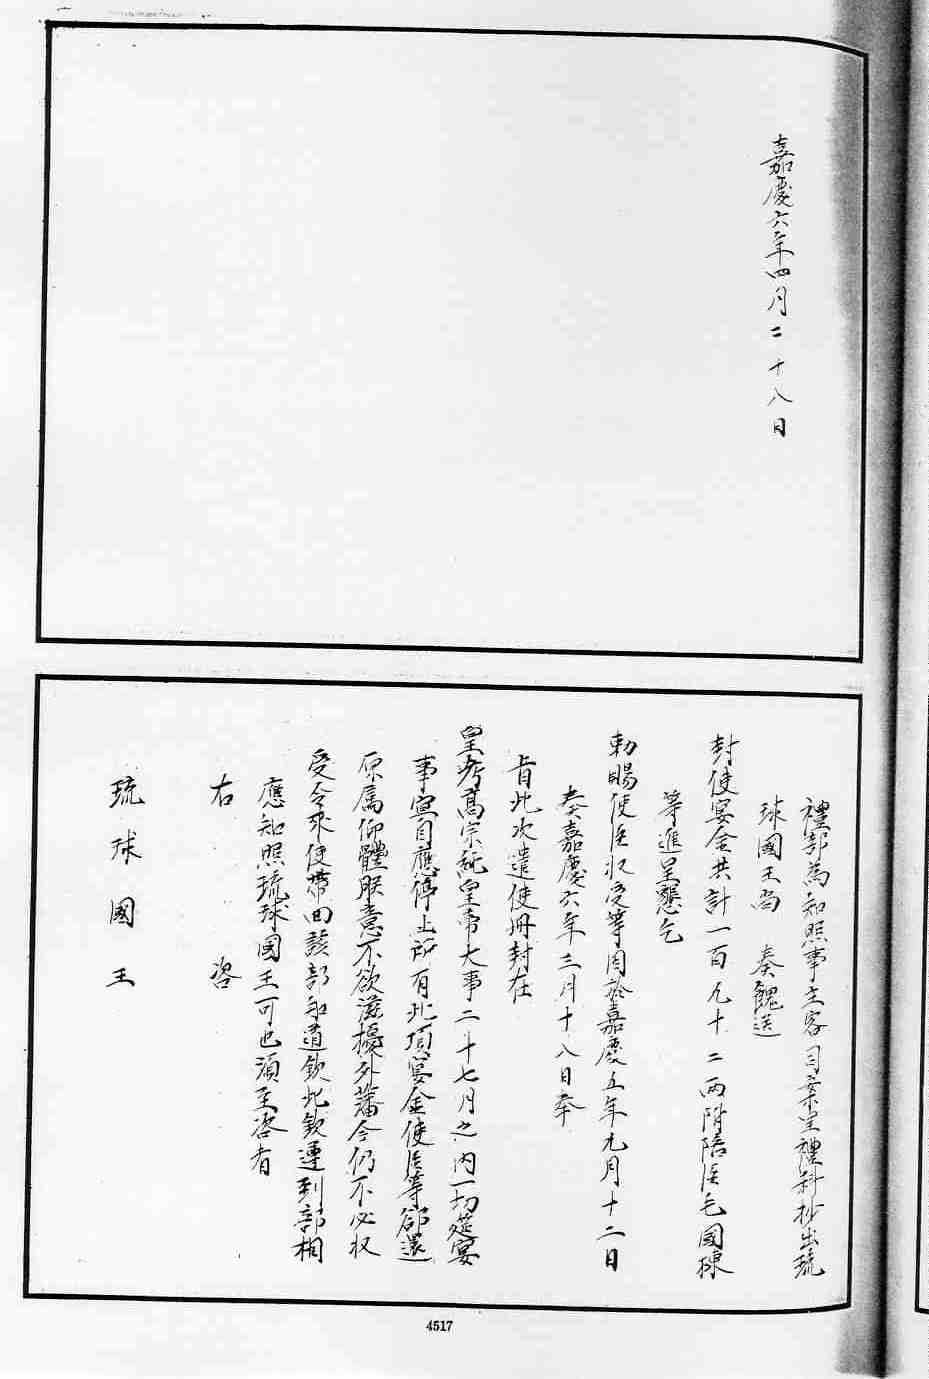 嘉慶六年四月二十八日
禮部為知照事主客司案呈禮科抄出琉
球國王尚 奏餽送
封使宴金共計一百九十二兩附陪臣毛國棟
等進呈懇乞
勅賜使臣收受等因於嘉慶五年九月十二日
奏嘉慶六年三月十八日奉
旨此次遣使冊封在
皇考高宗純皇帝大事二十七月之內一切筵宴
事宜自應停止所有此項宴金使臣等卻還
原属仰體朕意不欲滋擾外藩今仍不必收
受令來使帶回該部知道欽此欽遵到部相
應知照琉球國王可也須至咨者
右 咨
琉球國王
4517